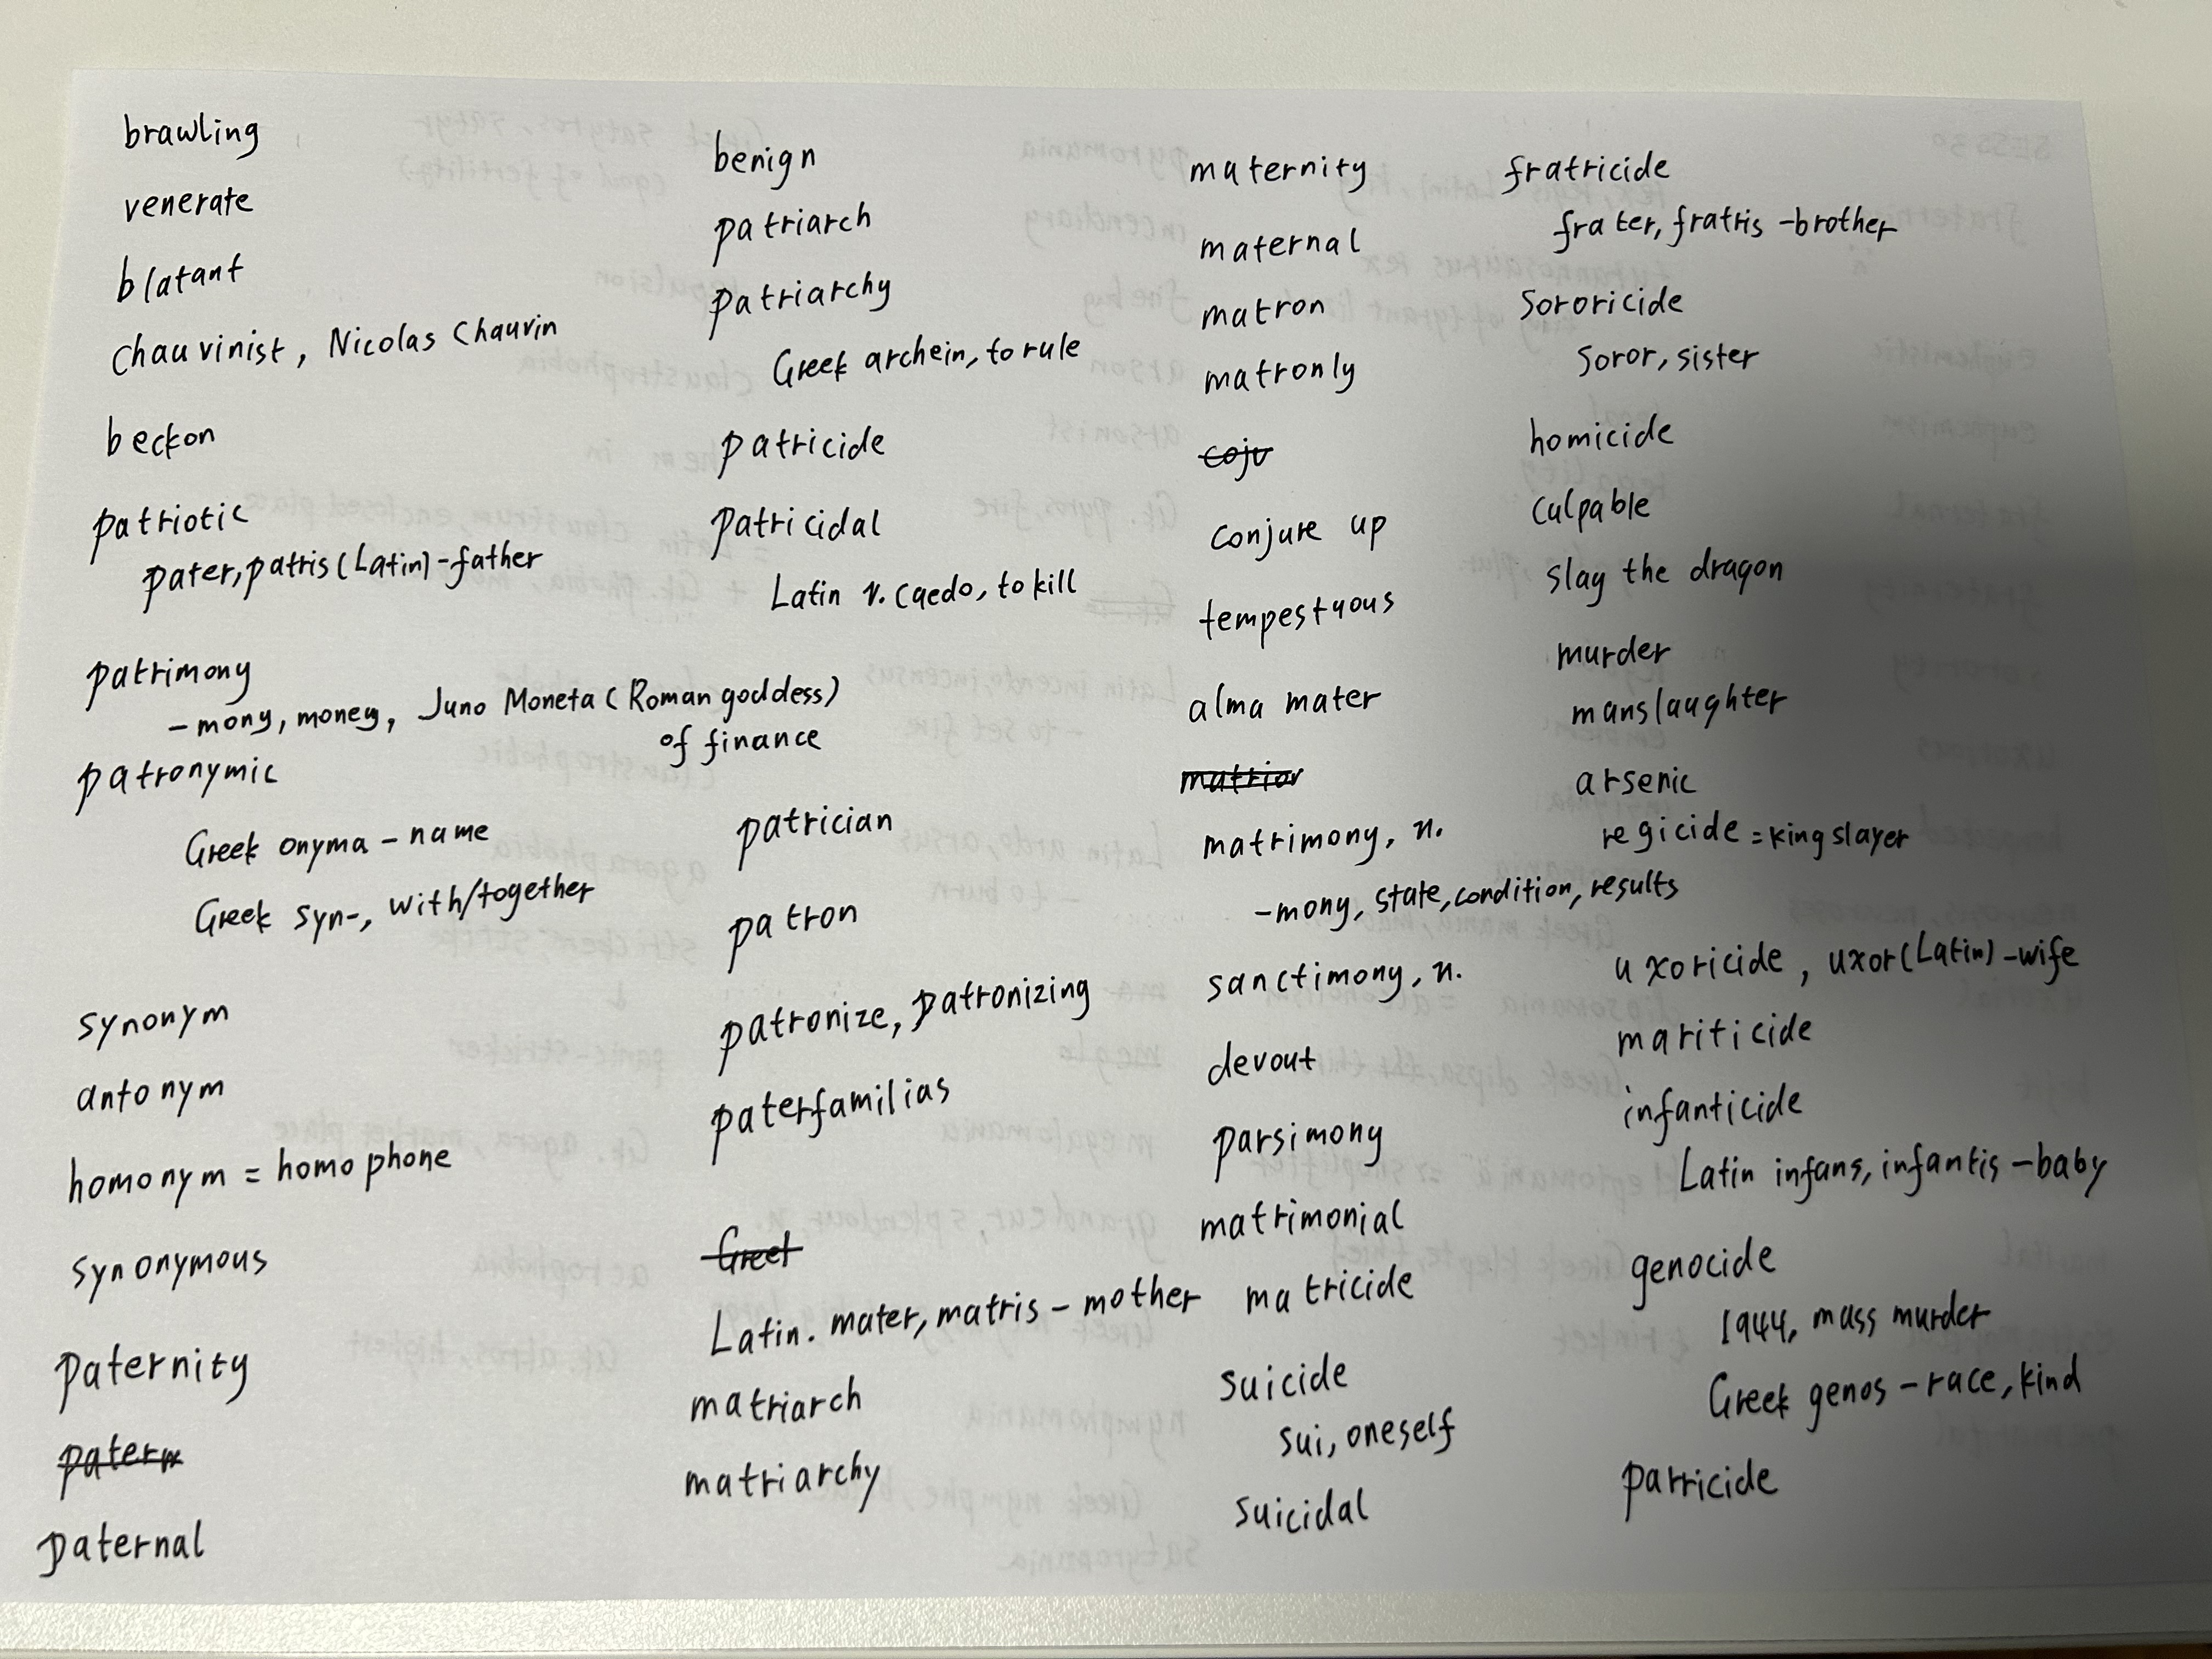 brawling
venerate
blatant
chauvinist, Nicolas Chauvin
beckon
patriotic
pater, patris (Latin) - father
patrimony
- mony, money, Juno Moneta (Roman goddess)
of finance
patronymic
Greek onyma - name
Greek syn-, with/together
synonym
antonym
homonym = homophone
synonymous
paternity
patern
paternal
benign
patriarch
patriarchy
Greek archein, to rule
patricide
patricidal
Latin v. caedo, to kill
patrician
patron
patronize, patronizing
paterfamilias
Greet
Latin. mater, matris - mother
matriarch
matriarchy
maternity
maternal
matron
matronly
coju
conjure up
tempestuous
alma mater
matrior
matrimony, n.
-mony, state, condition, results
sanctimony, n.
devout
parsimony
matrimonial
matricide
suicide
sui, oneself
suicidal
fratricide
frater, fratris - brother
Sororicide
Soror, sister
homicide
culpable
slay the dragon
murder
manslaughter
arsenic
regicide = king slayer
uxoricide, uxor (Latin) - wife
mariticide
infanticide
Latin infans, infantis - baby
genocide
1944, mass murder
Greek genos - race, kind
parricide